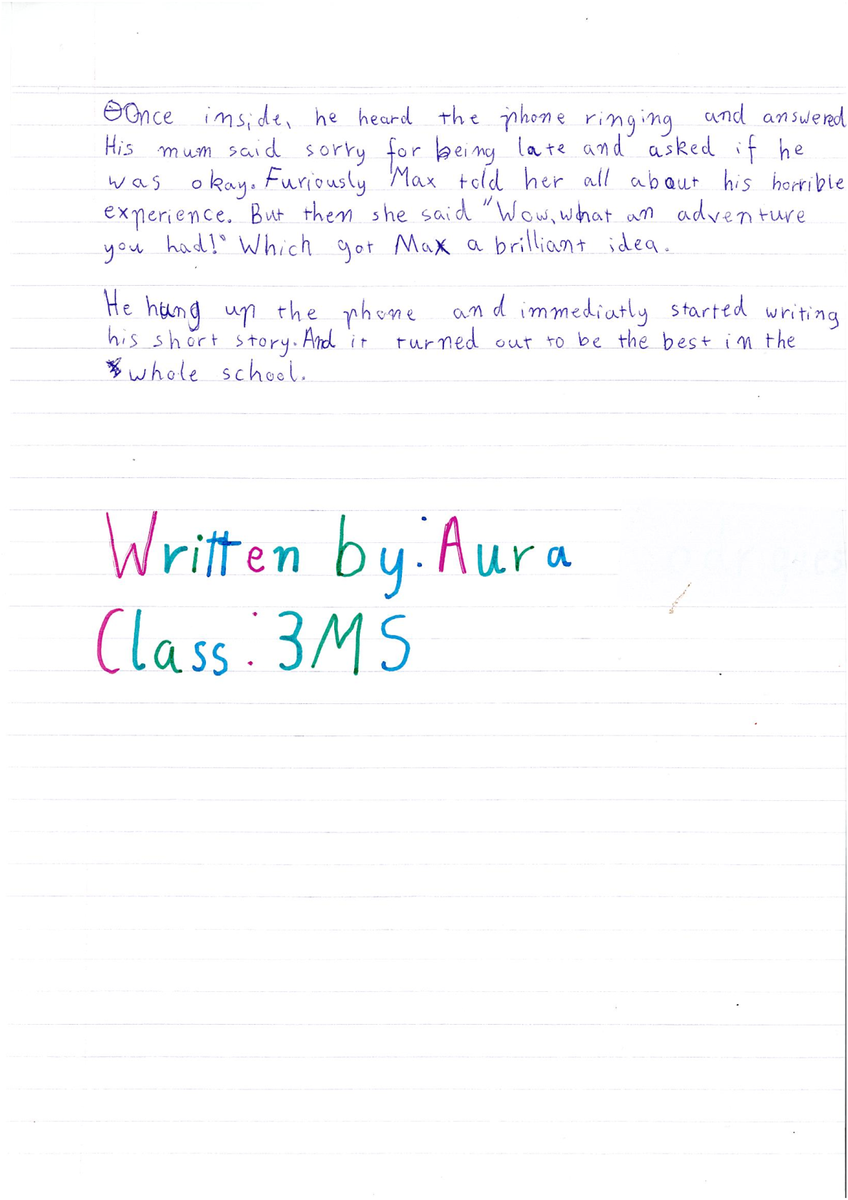 Once inside, he heard the phone ringing and answered
His mum said sorry for being late and asked if he
was okay. Furiously Max told her all about his horrible
experience. But then she said "Wow, what an adventure
you had!" Which got Max a brilliant idea.
He hung up the phone and immediatly started writing
his short story. And it turned out to be the best in the
whole school.
Written by: Aura
Class: 3MS